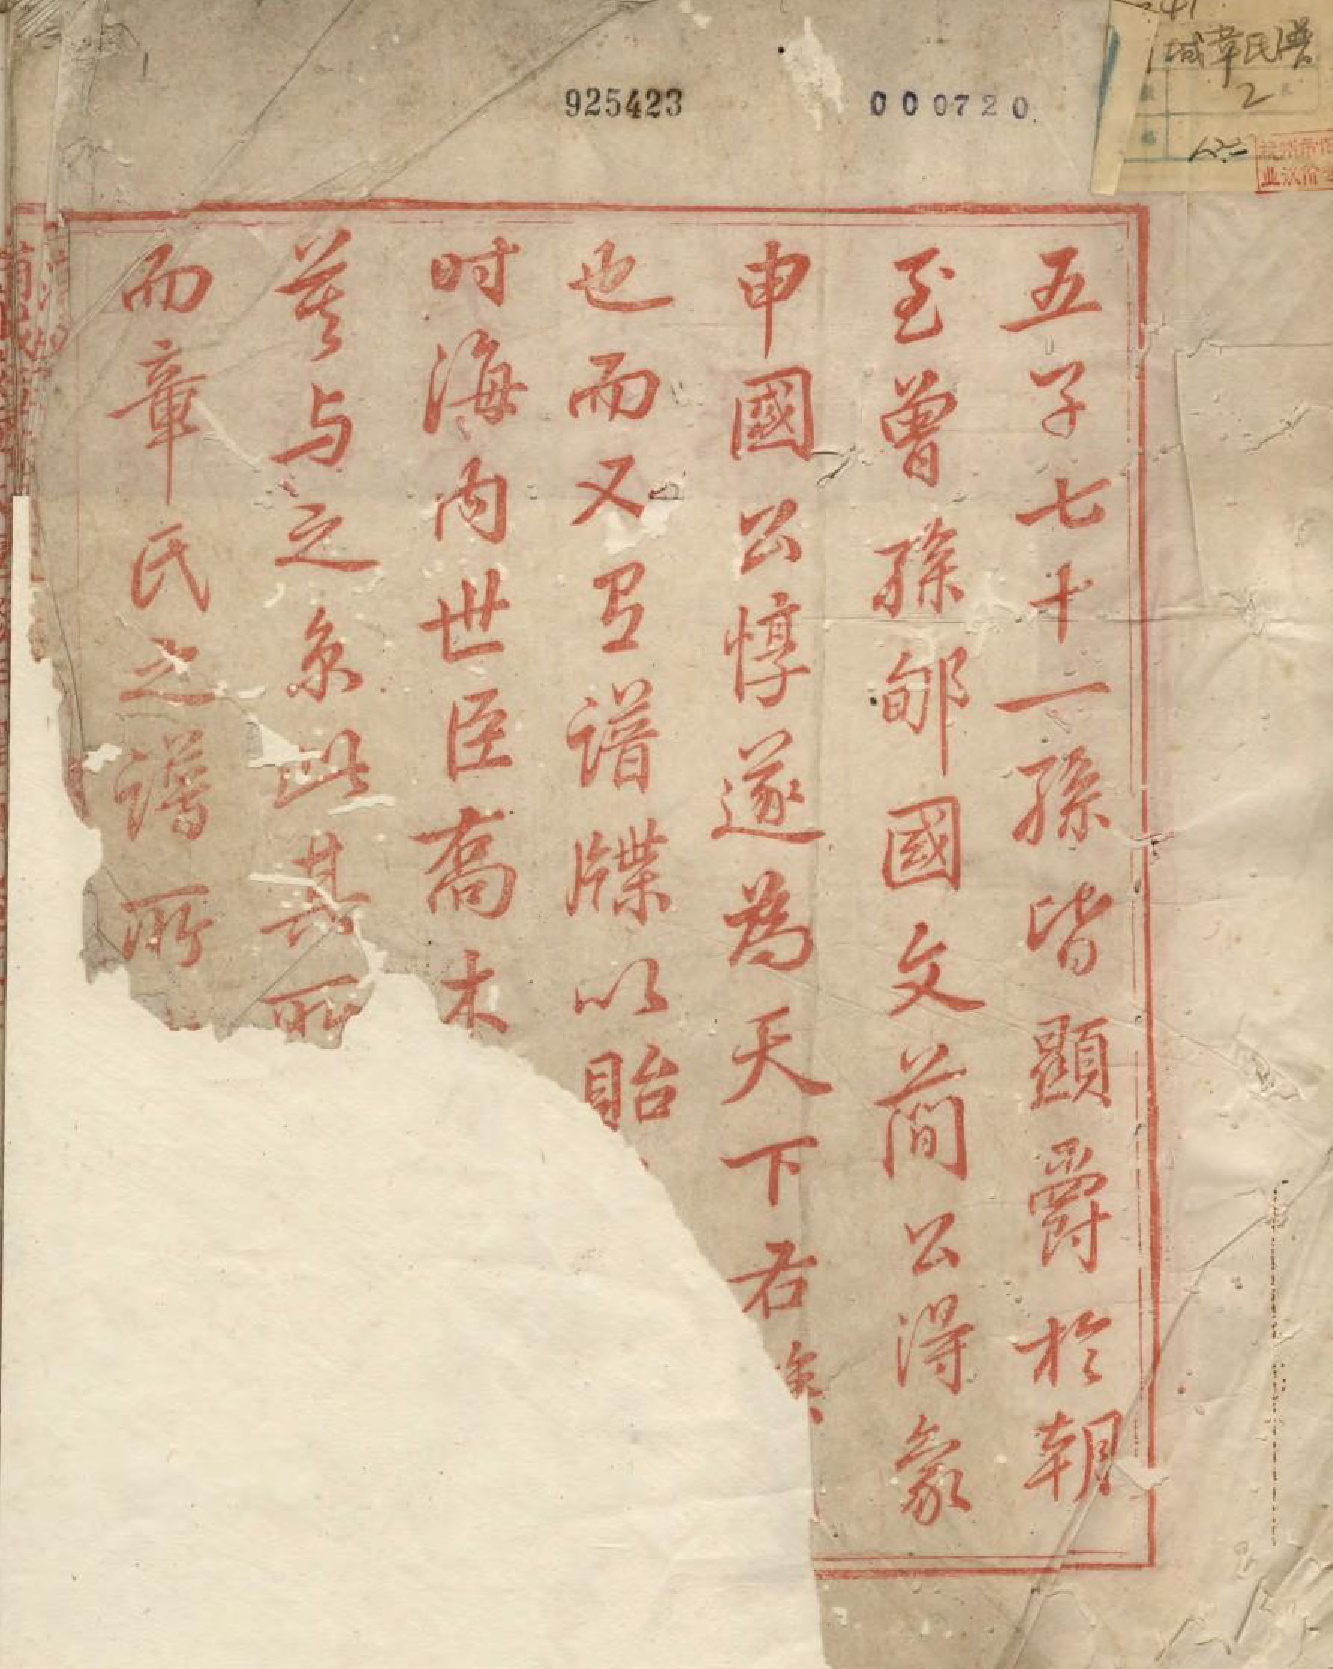 925423
000720
城章氏譜
2
五子七十一孫皆顯爵於朝
至曾孫郇國文簡公得象
申國公惇遂為天下右族
也而又有譜牒以貽
时海內世臣喬木
莫与之京此其所
而章氏之譜所